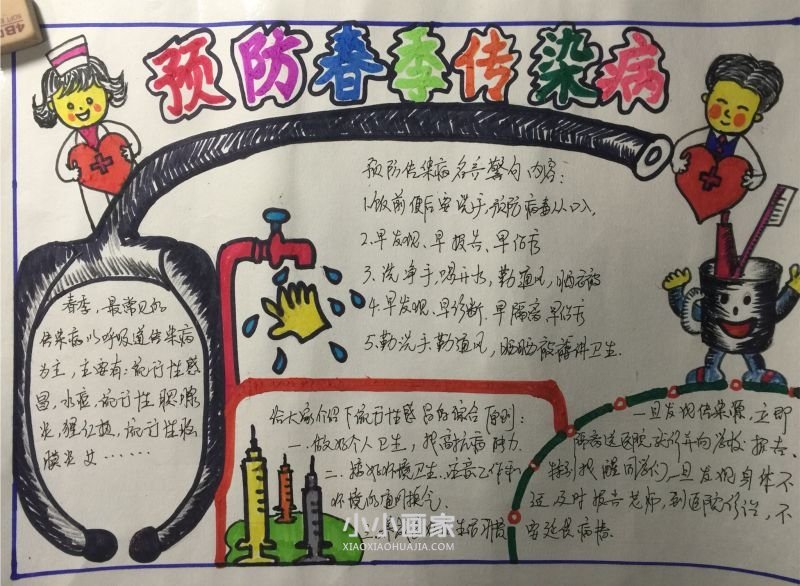 预防春季传染病
预防传染病名言警句内容:
1.饭前便后要洗手,预防病毒从口入,
2.早发现、早报告、早治疗
3.洗净手,喝开水,勤通风,晒衣被
4.早发现、早诊断、早隔离早治疗
5.勤洗手勤通风,晒晒衣被讲卫生.
春季,最常见的
传染病以呼吸道传染病
为主,主要有:流行性感
冒,水痘,流行性腮腺
炎,猩红热,流行性脑
膜炎
给大家介绍下流行性感冒的综合原则:
一.做好个人卫生,提高抗病能力.
二.搞好环境卫生.注意工作和
环境的通风换气.
三.养成
生活习惯
一旦发现传染源,立即
隔离送医院
并向学校报告.
特别提醒同学们一旦发现身体不
适及时报告老师,到医院诊治,不
要延长病情.
小小画家
XIAOXIAOHUAJIA.COM
4B